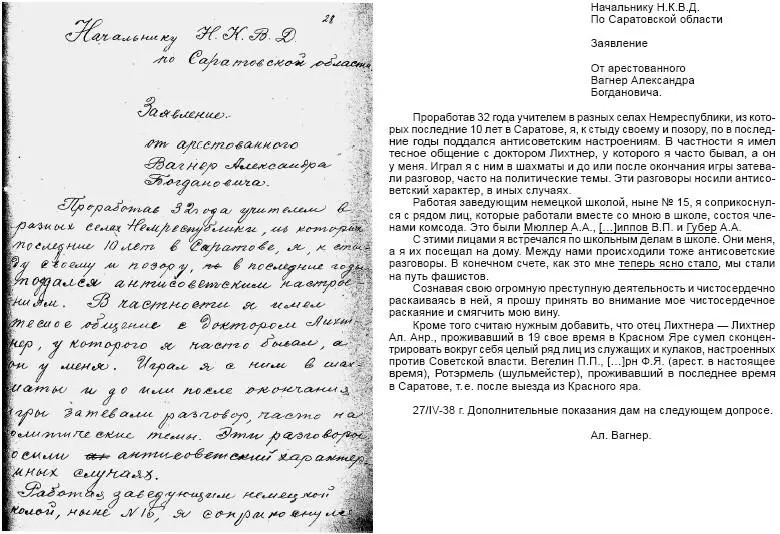 28
Начальнику Н.К.В.Д.
по Саратовской области
Заявление.
от арестованного
Вагнер Александра
Богдановича.
Проработав 32 года учителем в
разных селах Немреспублики, из которых
последние 10 лет в Саратове, я, к сты-
ду своему и позору, по в последние годы
поддался антисоветским настрое-
ниям. В частности я имел
тесное общение с доктором Лихт-
нер, у которого я часто бывал, а
он у меня. Играл я с ним в шах-
маты и до или после окончания
игры затевали разговор, часто на
политические темы. Эти разговоры
носили антисоветский характер,
в иных случаях.
Работая заведующим немецкой
школой, ныне № 15, я соприкоснулся
Начальнику Н.К.В.Д.
По Саратовской области
Заявление
От арестованного
Вагнер Александра
Богдановича.
Проработав 32 года учителем в разных селах Немреспублики, из кото-
рых последние 10 лет в Саратове, я, к стыду своему и позору, по в послед-
ние годы поддался антисоветским настроениям. В частности я имел
тесное общение с доктором Лихтнер, у которого я часто бывал, а он
у меня. Играл я с ним в шахматы и до или после окончания игры затева-
ли разговор, часто на политические темы. Эти разговоры носили антисо-
ветский характер, в иных случаях.
Работая заведующим немецкой школой, ныне № 15, я соприкоснул-
ся с рядом лиц, которые работали вместе со мною в школе, состоя чле-
нами комсода. Это были Мюллер А.А., [...]иппов В.П. и Губер А.А.
С этими лицами я встречался по школьным делам в школе. Они меня,
а я их посещал на дому. Между нами происходили тоже антисоветские
разговоры. В конечном счете, как это мне теперь ясно стало, мы стали
на путь фашистов.
Сознавая свою огромную преступную деятельность и чистосердечно
раскаиваясь в ней, я прошу принять во внимание мое чистосердечное
раскаяние и смягчить мою вину.
Кроме того считаю нужным добавить, что отец Лихтнера — Лихтнер
Ал. Анр., проживавший в 19 свое время в Красном Яре сумел сконцен-
трировать вокруг себя целый ряд лиц из служащих и кулаков, настроенных
против Советской власти. Вегелин П.П., [...]рн Ф.Я. (арест. в настоящее
время), Ротэрмель (шульмейстер), проживавший в последнее время
в Саратове, т.е. после выезда из Красного яра.
27/IV-38 г. Дополнительные показания дам на следующем допросе.
Ал. Вагнер.